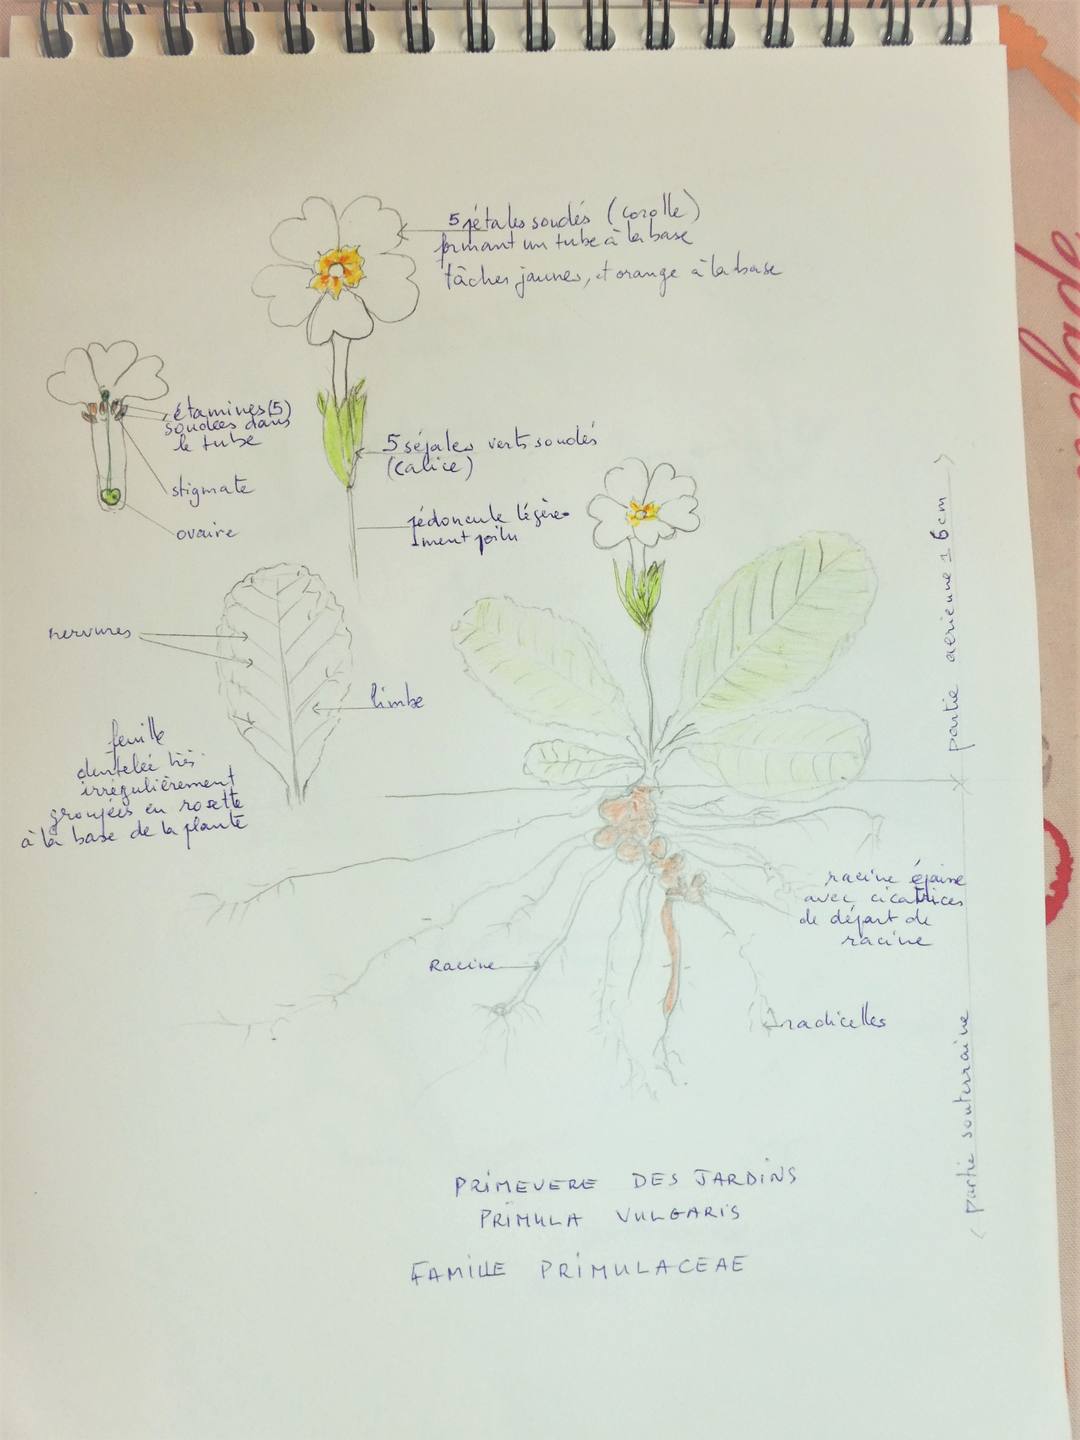 5 pétales soudés (corolle)
formant un tube à la base
tâches jaunes, et orange à la base
étamines (5)
soudées dans
le tube
stigmate
ovaire
5 sépales verts soudés
(calice)
pédoncule légère-
ment poilu
nervures
limbe
feuille
dentelée très
irrégulièrement
groupées en rosette
à la base de la plante
partie aérienne 16cm
racine épaisse
avec cicatrices
de départ de
racine
Racine
radicelles
partie souterraine
PRIMEVERE DES JARDINS
PRIMULA VULGARIS
FAMILLE PRIMULACEAE